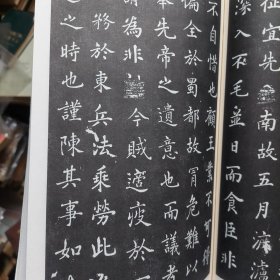 征宜先南故五月渡
深入不毛並日而食臣非
不自惜也顧王業不可得
偏全於蜀都故冒危難以
奉先帝之遺意也而議者
謂為非今賊適疲於
務於東兵法乘勞此
之時也謹陳其事如